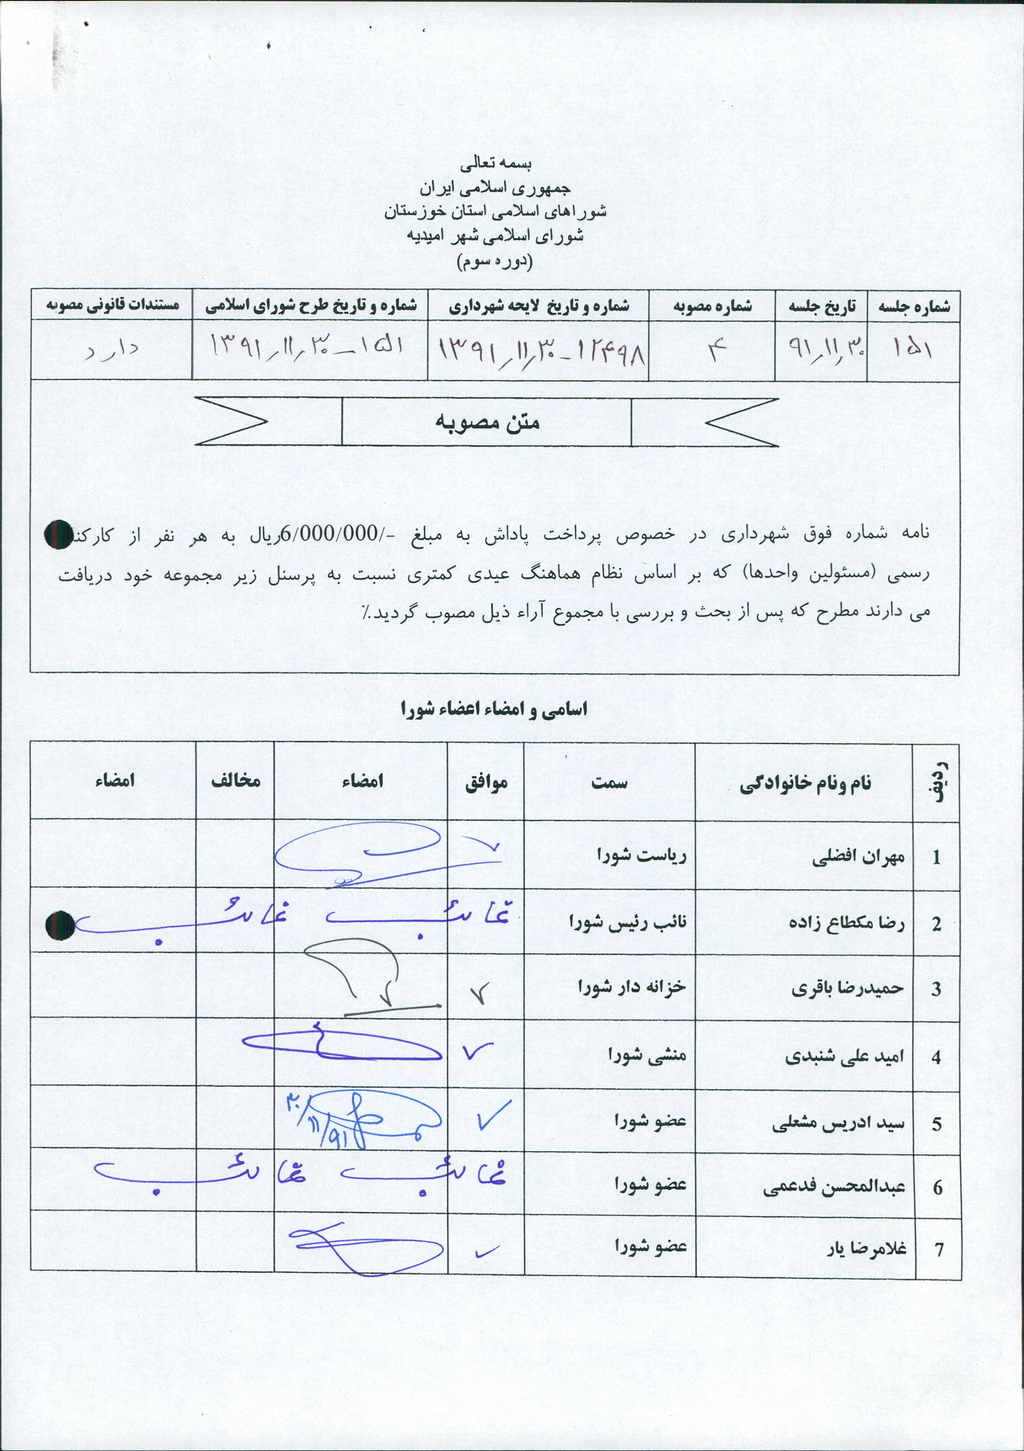 بسمه تعالی
جمهوری اسلامی ایران
شوراهای اسلامی استان خوزستان
شورای اسلامی شهر امیدیه
(دوره سوم)
شماره جلسه تاریخ جلسه شماره مصوبه شماره و تاریخ لایحه شهرداری شماره و تاریخ طرح شورای اسلامی مستندات قانونی مصوبه
۱۵۱ ۹۱,۱۱,۳۰ ۴ ۱۲۴۹۸-۱۳۹۱,۱۱,۳۰ ۱۵۱-۱۳۹۱,۱۱,۳۰ دارد
متن مصوبه
نامه شماره فوق شهرداری در خصوص پرداخت پاداش به مبلغ -/6/000/000ریال به هر نفر از
رسمی (مسئولین واحدها) که بر اساس نظام هماهنگ عیدی کمتری نسبت به پرسنل زیر مجموعه خود دریافت
می دارند مطرح که پس از بحث و بررسی با مجموع آراء ذیل مصوب گردید.٪
اسامی و امضاء اعضاء شورا
ردیف نام ونام خانوادگی سمت موافق امضاء مخالف امضاء
1 مهران افضلی ریاست شورا ✓
2 رضا مکطاع زاده نائب رئیس شورا غائب غائب
3 حمیدرضا باقری خزانه دار شورا ✓
4 امید علی شنبدی منشی شورا ✓
5 سید ادریس مشعلی عضو شورا ✓ ۹۱/۱۱/۳۰
6 عبدالمحسن فدعمی عضو شورا غائب غائب
7 غلامرضا یار عضو شورا ✓